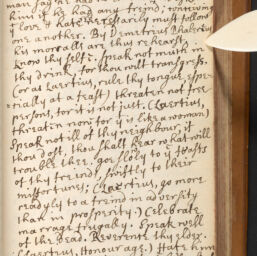 may say he had
him if he had any freind; conceiving
yt love & hate necessarily must follow
one another. By Demetrius Phalereus
his moralls are thus rehears'd.
Know thy self. Speak not much in
thy drink, for thou wilt transgress.
(or as Laertius, rule thy tongue, espe-
-cially at a feast) threaten not free
persons, for it is not just. (Laertius,
threaten none for yt is like a woman)
Speak not ill of thy neighbour, if
thou dost, thou shalt hear what will
trouble thee. goe slowly to ye feasts
of thy freinds, swiftly to their
misfortunes; (Laertius, go more
readyly to a freind in adversity
than in prosperity.) Celebrate
marrage frugally. Speak well
of the dead. Reverence thy elder.
(Laertius, Honour age.) Hate him